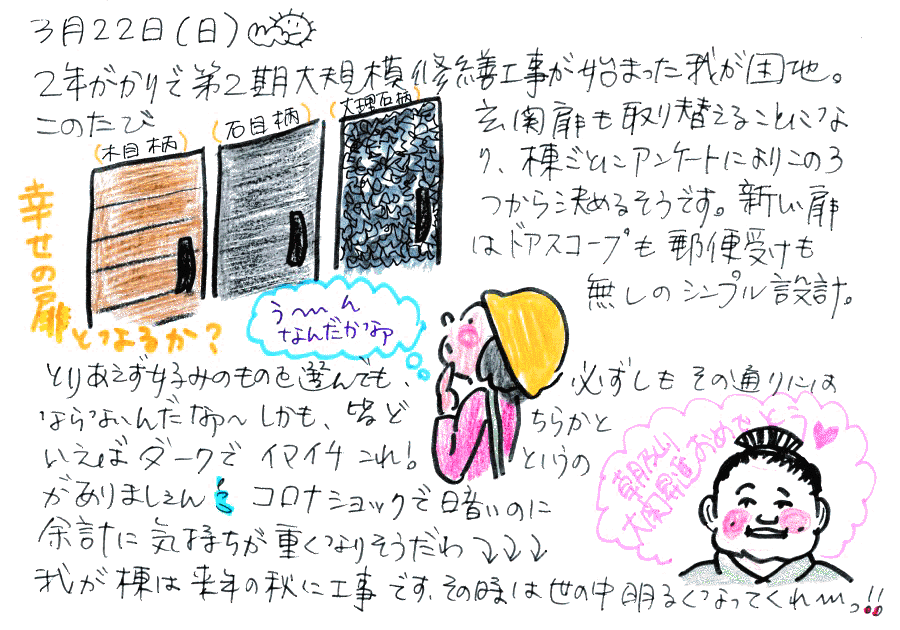 3月22日(日)
2年がかりで第2期大規模修繕工事が始まった我が団地。
このたび
玄関扉も取り替えることにな
り、棟ごとにアンケートによりこの3
つから決めるそうです。新しい扉
はドアスコープも郵便受けも
無しのシンプル設計。
(木目柄)
(石目柄)
(大理石柄)
幸せの扉
となるか?
う〜ん
なんだかなァ
とりあえず好みのものを選んでも、必ずしもその通りには
ならないんだなァ〜しかも、皆どちらかと
いえばダークでイマイチこれ!というの
がありましぇんコロナショックで暗いのに
余計に気持ちが重くなりそうだわ⤵⤵⤵
我が棟は来年の秋に工事です。その時は世の中明るくなってくれ〜っ!!
朝乃山
大関昇進おめでとう♡